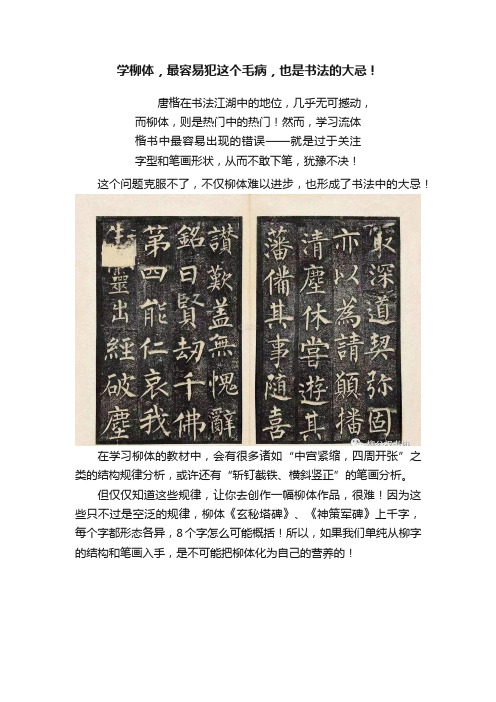 学柳体，最容易犯这个毛病，也是书法的大忌！
唐楷在书法江湖中的地位，几乎无可撼动，
而柳体，则是热门中的热门！然而，学习流体
楷书中最容易出现的错误——就是过于关注
字型和笔画形状，从而不敢下笔，犹豫不决！
这个问题克服不了，不仅柳体难以进步，也形成了书法中的大忌！
取深道契弥固
亦以為請願播
清塵休嘗遊其
藩備其事随喜
讃歎盖無愧辭
銘曰賢劫千佛
第四能仁哀我
靈出經破塵
在学习柳体的教材中，会有很多诸如“中宫紧缩，四周开张”之
类的结构规律分析，或许还有“斩钉截铁、横斜竖正”的笔画分析。
但仅仅知道这些规律，让你去创作一幅柳体作品，很难！因为这
些只不过是空泛的规律，柳体《玄秘塔碑》、《神策军碑》上千字，
每个字都形态各异，8个字怎么可能概括！所以，如果我们单纯从柳字
的结构和笔画入手，是不可能把柳体化为自己的营养的！